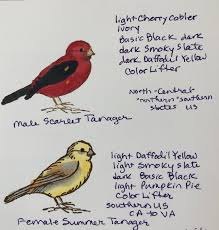 light Cherry Cobler
ivory
Basic Black dark
dark Smoky Slate
dark Daffodil Yellow
Color Lifter
North-Central
"northern" southern
states US
Male Scarlet Tanager
light Daffodil Yellow
light Smokey Slate
dark Basic Black
light Pumpkin Pie
Color Lifter
southern US
CA to VA
Female Summer Tanager